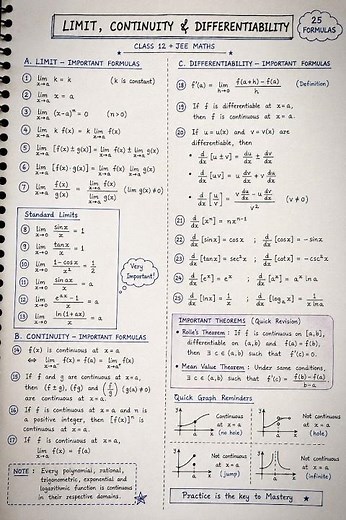 LIMIT, CONTINUITY & DIFFERENTIABILITY
25 FORMULAS
CLASS 12 + JEE MATHS
A. LIMIT – IMPORTANT FORMULAS
1 lim x→a k = k (k is constant)
2 lim x→a x = a
3 lim x→a (x-a)^n = 0 (n>0)
4 lim x→a k f(x) = k lim x→a f(x)
5 lim x→a [f(x) ± g(x)] = lim x→a f(x) ± lim x→a g(x)
6 lim x→a [f(x)·g(x)] = lim x→a f(x) · lim x→a g(x)
7 lim x→a f(x)/g(x) = lim x→a f(x) / lim x→a g(x) (lim g(x) ≠ 0)
Standard Limits
8 lim x→0 sinx/x = 1
9 lim x→0 tanx/x = 1
10 lim x→0 1-cosx/x² = 1/2
11 lim x→0 sin ax/x = a
12 lim x→0 e^ax - 1/x = a
13 lim x→0 ln(1+ax)/x = a
Very Important!
B. CONTINUITY – IMPORTANT FORMULAS
14 f(x) is continuous at x=a
⇔ lim x→a⁻ f(x) = f(a) = lim x→a⁺ f(x)
15 If f and g are continuous at x=a,
then (f±g), (fg) and (f/g) (g(a)≠0)
are continuous at x=a.
16 If f is continuous at x=a and n is
a positive integer, then [f(x)]^n is
continuous at x=a.
17 If f is continuous at x=a,
lim x→a f(x) = f(a)
NOTE : Every polynomial, rational,
trigonometric, exponential and
logarithmic function is continuous
in their respective domains.
C. DIFFERENTIABILITY – IMPORTANT FORMULAS
18 f'(a) = lim h→0 f(a+h) - f(a)/h (Definition)
19 If f is differentiable at x=a,
then f is continuous at x=a.
20 If u = u(x) and v = v(x) are
differentiable, then
• d/dx [u ± v] = du/dx ± dv/dx
• d/dx [uv] = u dv/dx + v du/dx
• d/dx [u/v] = v du/dx - u dv/dx / v² (v ≠ 0)
21 d/dx [x^n] = nx^n-1
22 d/dx [sinx] = cosx ; d/dx [cosx] = -sinx
23 d/dx [tanx] = sec²x ; d/dx [cotx] = -csc²x
24 d/dx [e^x] = e^x ; d/dx [a^x] = a^x ln a
25 d/dx [lnx] = 1/x ; d/dx [log_a x] = 1/x ln a
IMPORTANT THEOREMS (Quick Revision)
• Rolle's Theorem : If f is continuous on [a,b],
differentiable on (a,b) and f(a) = f(b),
then ∃ c ∈ (a,b) such that f'(c) = 0.
• Mean Value Theorem : Under same conditions,
∃ c ∈ (a,b) such that f'(c) = f(b)-f(a)/b-a
Quick Graph Reminders
Continuous at x=a (no hole)
Not continuous at x=a (hole)
Not continuous at x=a (jump)
Not continuous at x=a (infinite)
Practice is the key to Mastery